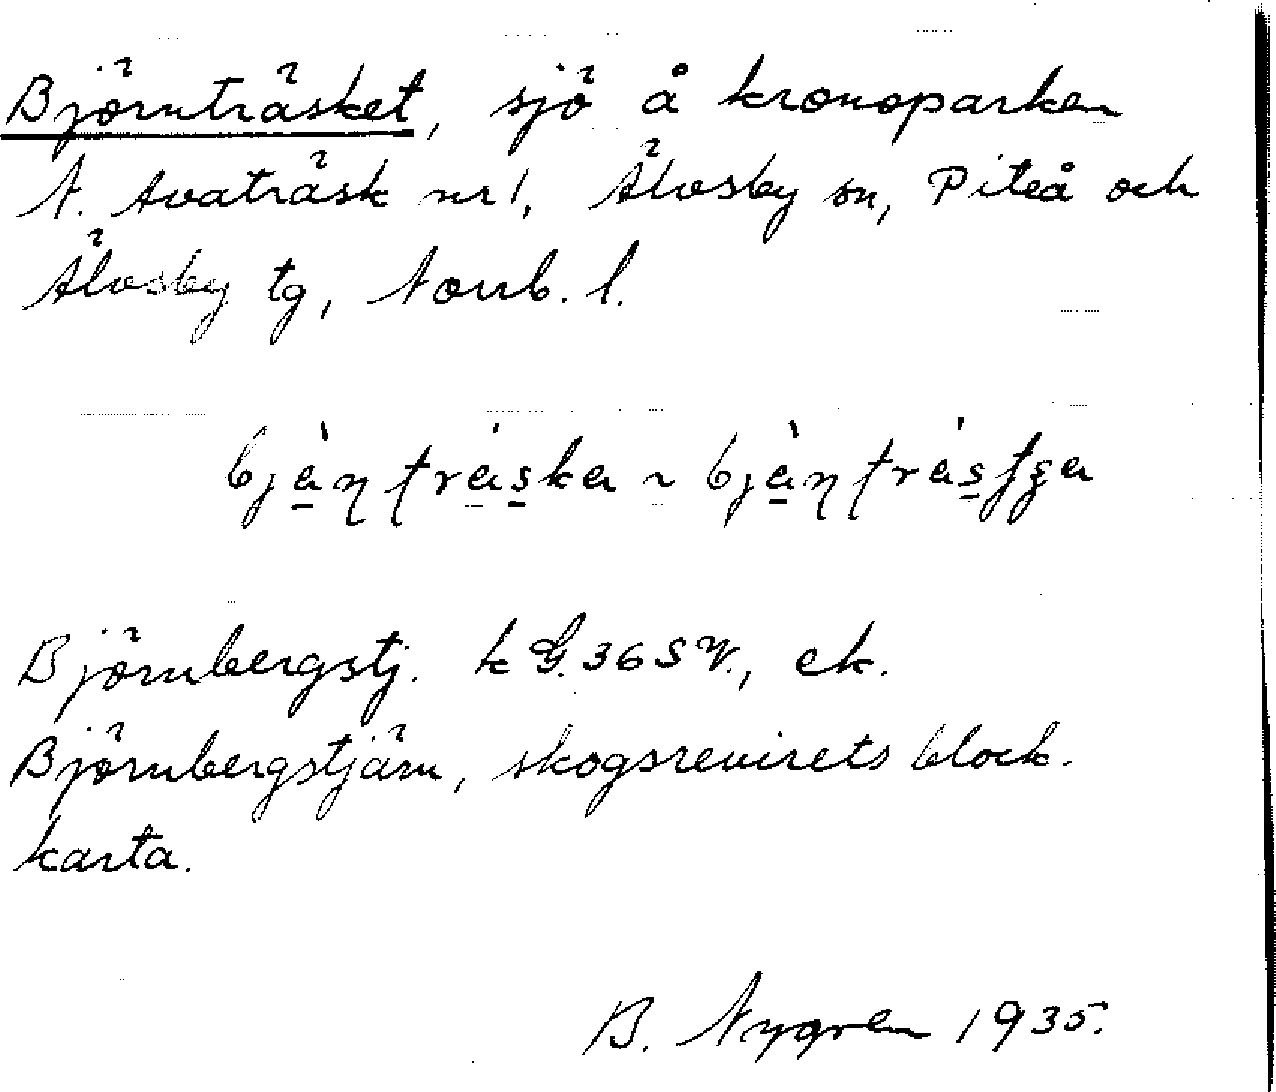 Björnträsket, sjö å kronoparken
N. Avaträsk nr 1, Älvsby sn, Piteå och
Älvsby tg, Norrb. l.
Björnbergstj. k G. 36 SV., ek.
Björnbergstjärn, skogsrevirets block-
karta.
B. Nygren 1935.